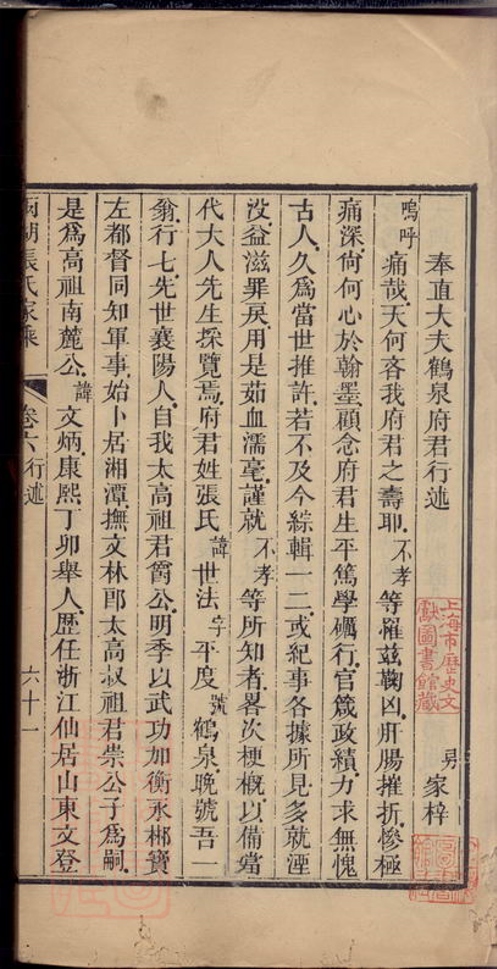 奉直大夫鶴泉府君行述
男 家梓
嗚呼痛哉天何吝我府君之壽耶不孝等罹茲鞠凶肝腸摧折慘極
痛深尙何心於翰墨顧念府君生平篤學礪行官箴政績力求無愧
古人久爲當世推許若不及今綜輯一二或紀事各據所見多就湮
沒益滋罪戾用是茹血濡毫謹就不孝等所知者畧次梗槪以備當
代大人先生採覽焉府君姓張氏諱世法字平度號鶴泉晚號吾一
翁行七先世襄陽人自我太高祖君爵公明季以武功加衡永郴寶
左都督同知軍事始卜居湘潭撫文林郎太高叔祖君崇公子爲嗣
是爲高祖南麓公諱文炳康熙丁卯舉人歷任浙江仙居山東文登
張氏家乘 卷六 行述 六十一
上海市歷史文獻圖書館藏